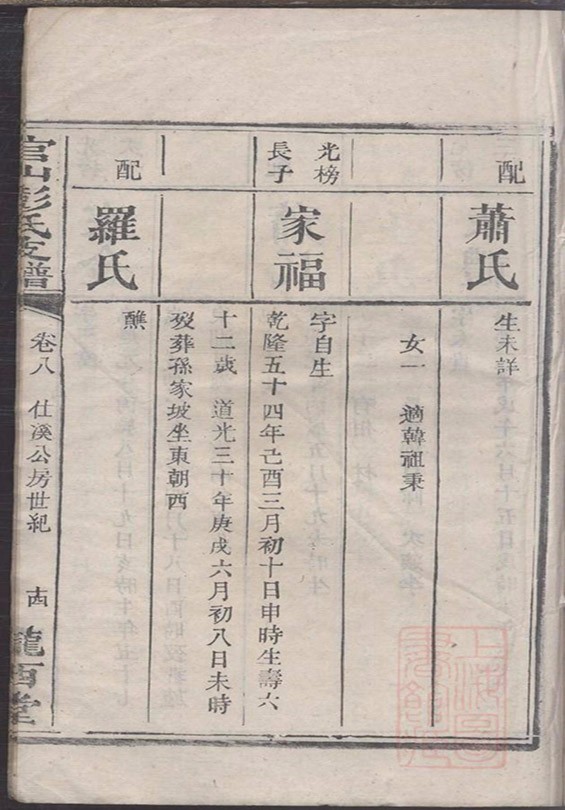 配
蕭氏
生未詳
女一 適韓祖秉
光榜
長子
家福
字自生
乾隆五十四年己酉三月初十日申時生壽六
十二歲 道光三十年庚戌六月初八日未時
歿葬孫家坡坐東朝西
配
羅氏
醮
官山彭氏支譜
卷八 仕溪公房世紀
十四
隴西堂